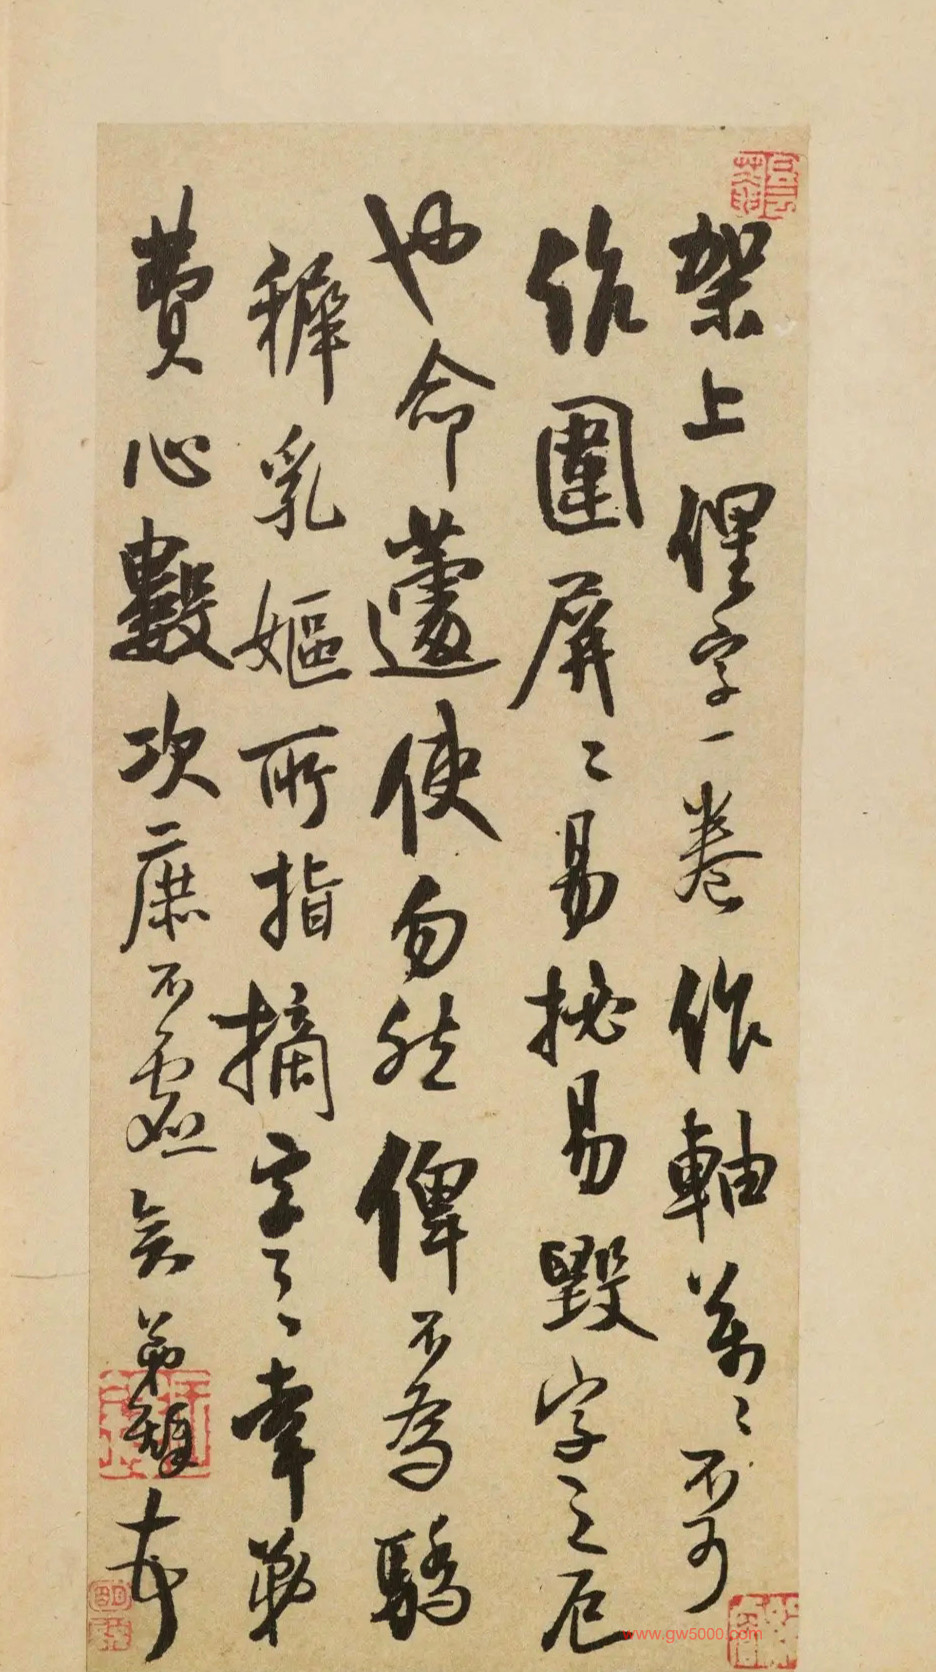 架上俚字一卷作軸萬〻不可
作圍屏〻易易毀字之厄
也命蘧使勿然俾不為驕
穉乳嫗所指摘字之幸弟
費心數次庶不虛矣弟
www.gw5000.com